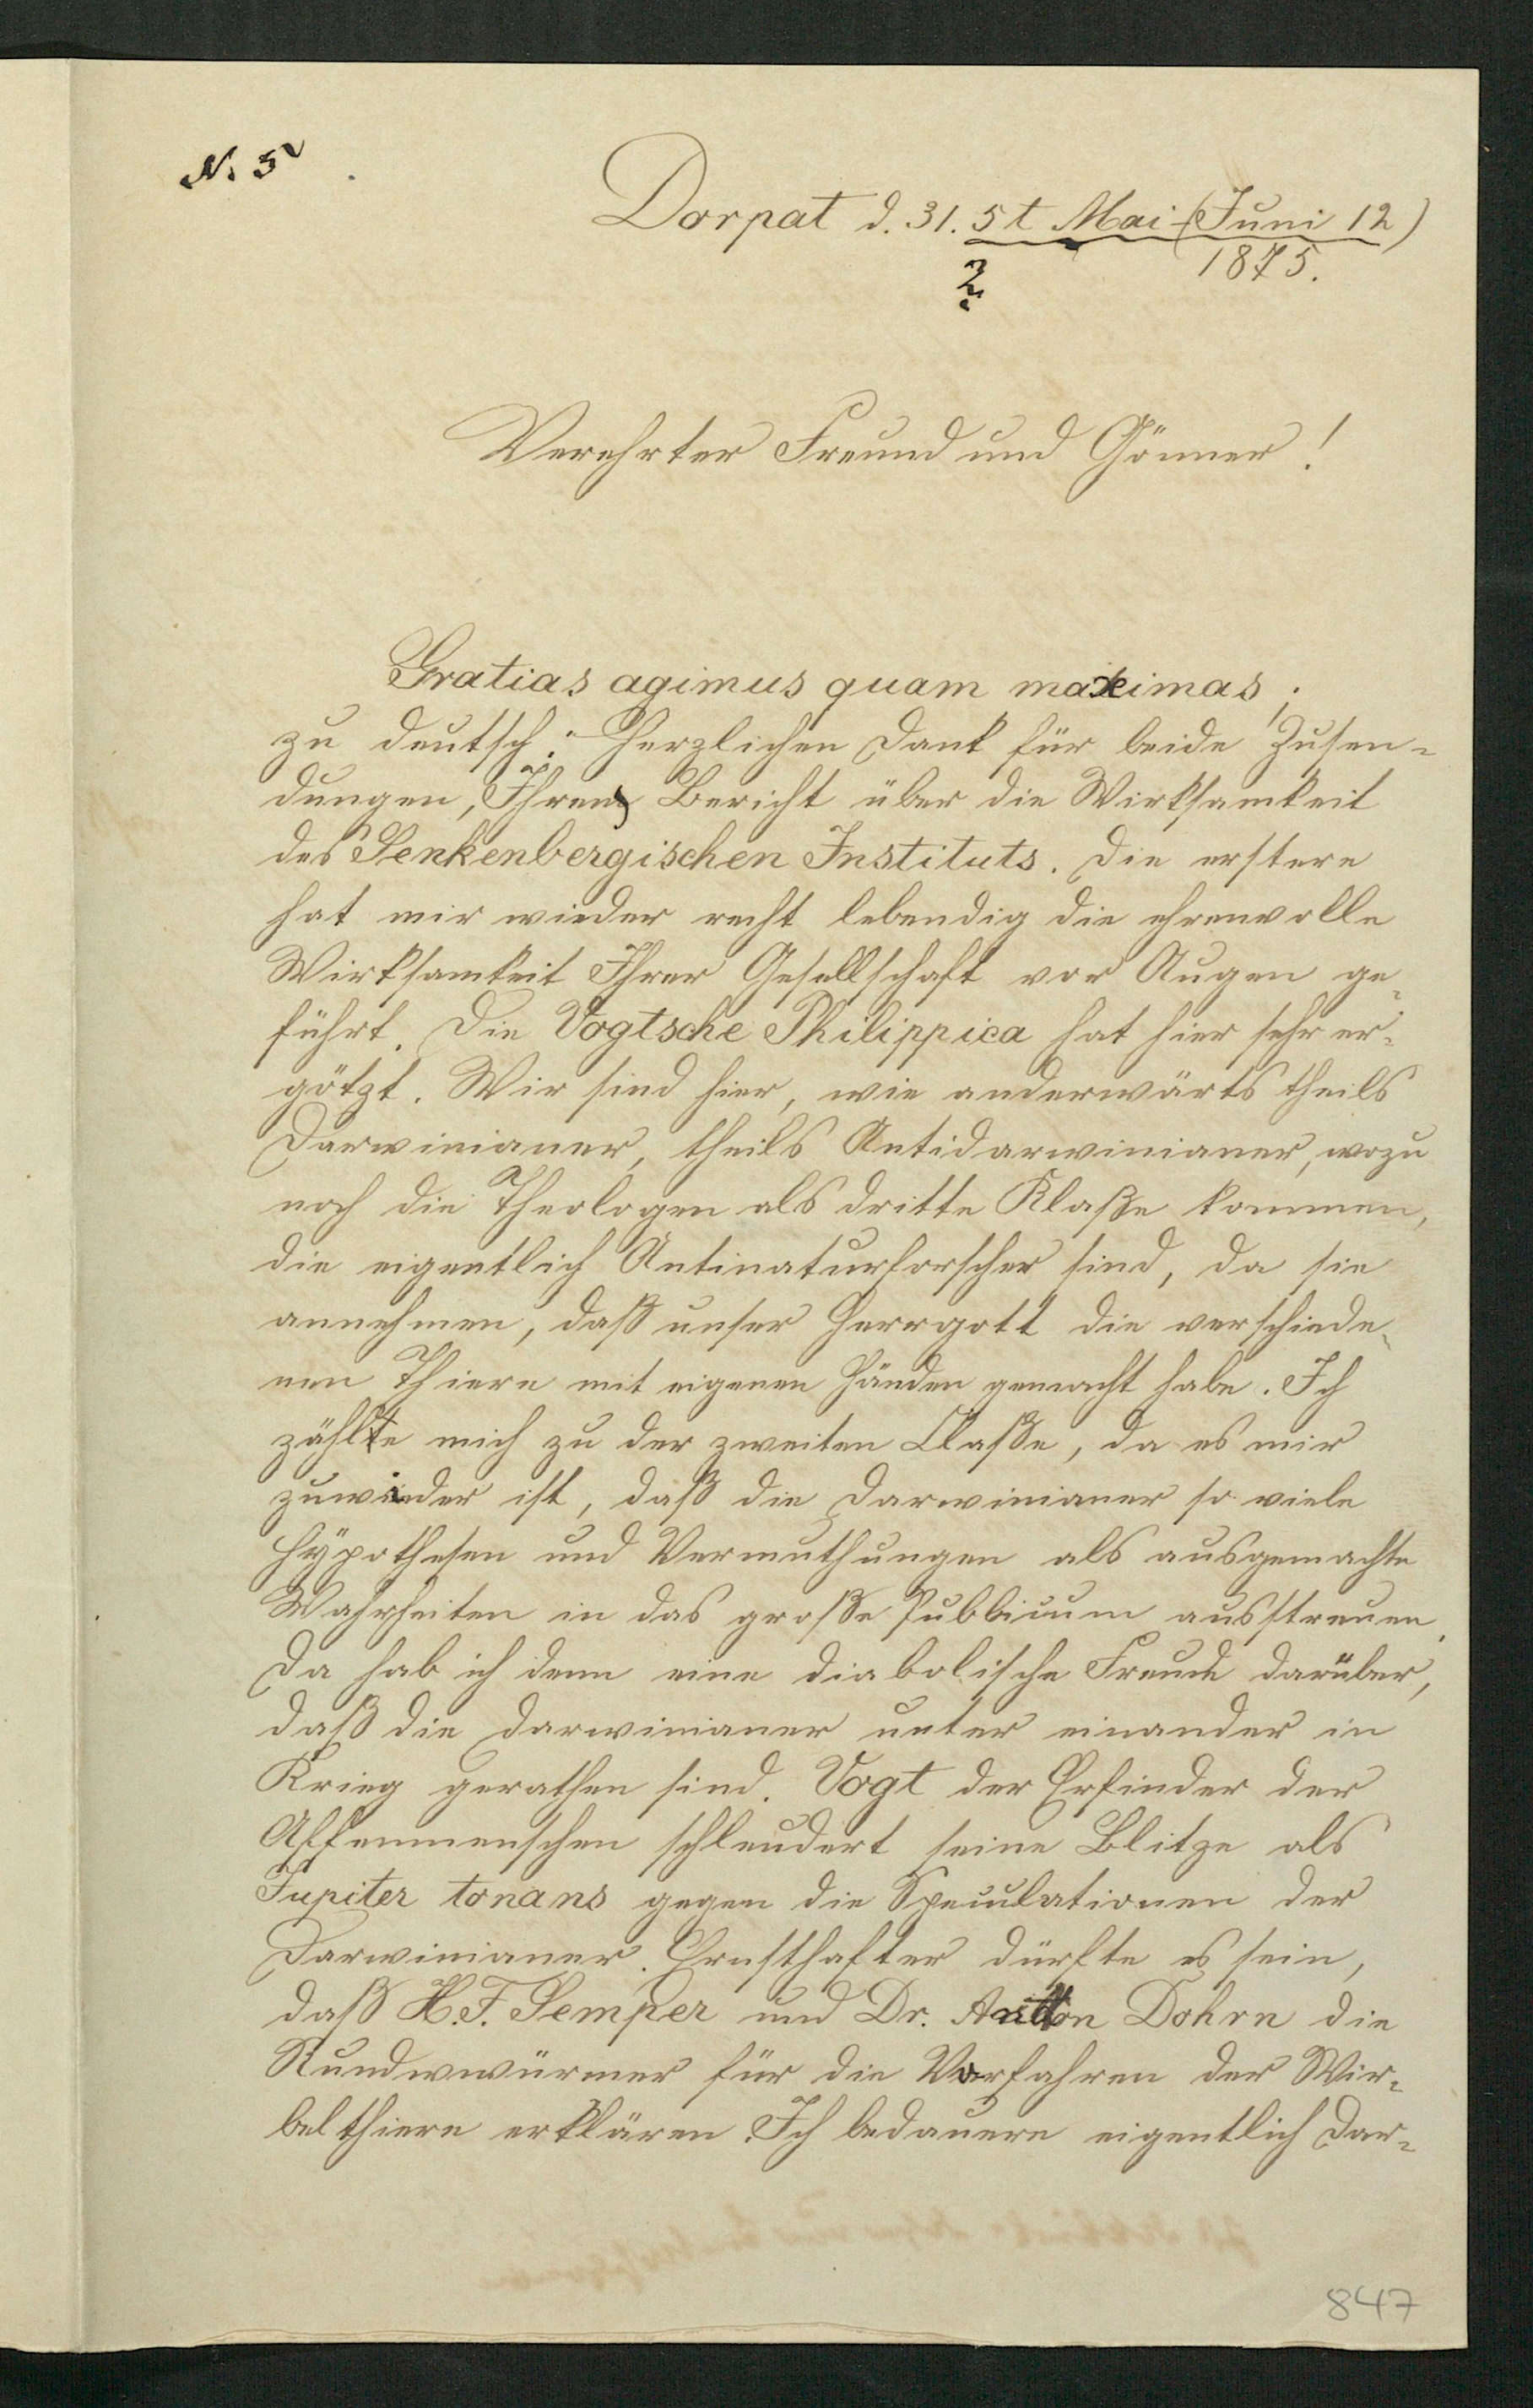 N. 5
Dorpat d. 31. 5t Mai (Juni 12)
1875.
?
Verehrter Freund und Gönner!
Gratias agimus quam maximas;
zu deutsch: Herzlichen Dank für beide Zusen-
dungen, Ihren Bericht über die Wirksamkeit
des Senkenbergischen Instituts. Die erstere
hat mir wieder recht lebendig die ehrenvolle
Wirksamkeit Ihrer Gesellschaft vor Augen ge-
führt. Die Vogtsche Philippica hat hier sehr er-
götzt. Wir sind hier, wie anderwärts theils
Darwinianer, theils Antidarwinianer, wozu
noch die Theologen als dritte Klaße kommen,
die eigentlich Antinaturforscher sind, da sie
annehmen, daß unser Herrgott die verschiede-
nen Thiere mit eigenen Händen gemacht habe. Ich
zählte mich zu der zweiten Claße, da es mir
zuwider ist, daß die Darwinianer so viele
Hypothesen und Vermuthungen als ausgemachte
Wahrheiten in das große Publicum ausstreuen.
Da hab ich denn eine diabolische Freude darüber,
daß die Darwinianer unter einander in
Krieg gerathen sind. Vogt der Erfinder der
Affenmenschen schleudert seine Blitze als
Jupiter tonans gegen die Speculationen der
Darwinianer. Ernsthafter dürfte es sein,
daß H. F. Semper und Dr. Anton Dohrn die
Rundwürmer für die Vorfahren der Wir-
belthiere erklären. Ich bedauere eigentlich Dar-
847